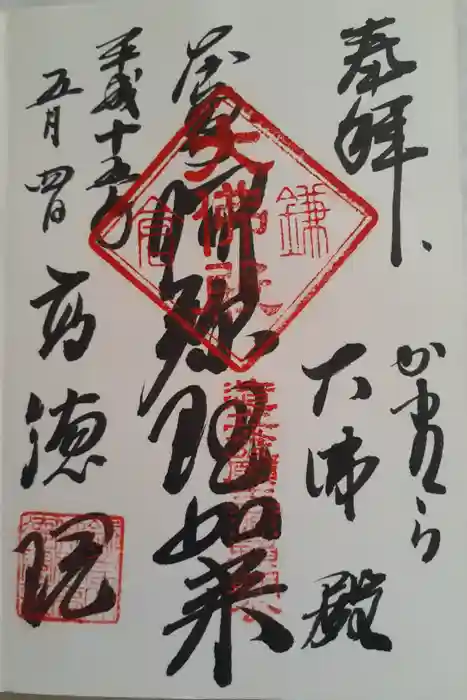 奉拝、
かまくら
大佛殿
阿弥陀如来
平成十五年
五月四日
高徳院
鎌倉
大佛殿